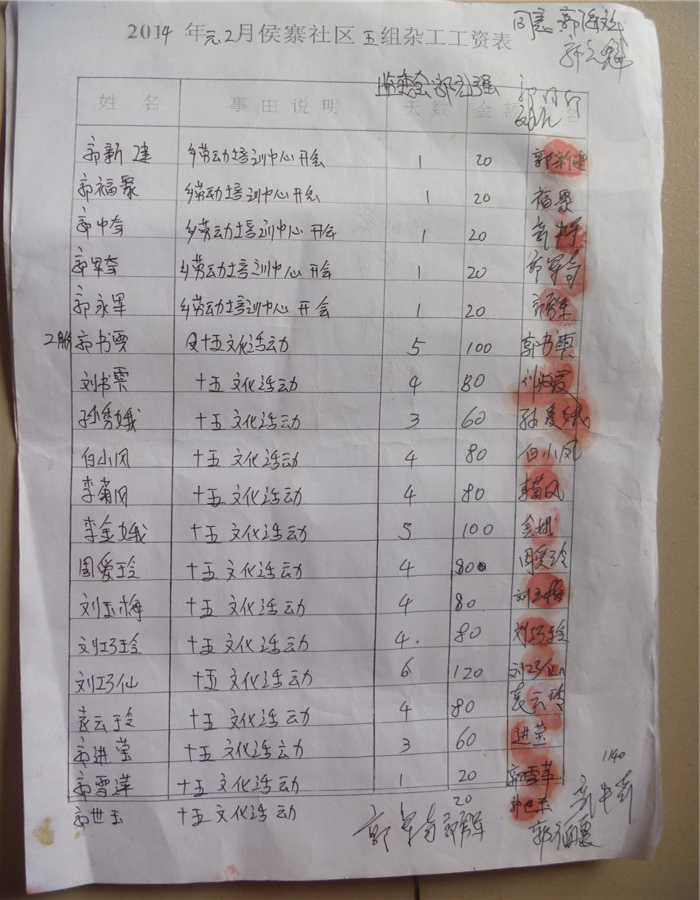 2014 年元2月侯寨社区五组杂工工资表
同意
监委会:郭
姓 名 事 由 说 明 天 数 金 额
郭新建 乡劳动力培训中心开会 1 20 郭新建
郭福聚 乡劳动力培训中心开会 1 20 福聚
郭中奇 乡劳动力培训中心开会 1 20
郭军奇 乡劳动力培训中心开会 1 20 郭军奇
郭永军 乡劳动力培训中心开会 1 20
2月份 郭书霞 十五文化活动 5 100 郭书霞
刘书霞 十五文化活动 4 80
孙秀娥 十五文化活动 3 60 孙秀娥
白小凤 十五文化活动 4 80 白小凤
李菊凤 十五文化活动 4 80 李菊凤
李金娥 十五文化活动 5 100 金娥
周爱玲 十五文化活动 4 80 周爱玲
刘玉梅 十五文化活动 4 80 刘玉梅
刘巧玲 十五文化活动 4 80 刘巧玲
刘巧仙 十五文化活动 6 120 刘巧仙
袁云玲 十五文化活动 4 80 袁云玲
郭进莹 十五文化活动 3 60 进莹
郭雪萍 十五文化活动 1 20 郭雪萍
1140
郭世玉 十五文化活动 20 郭世玉
郭军奇